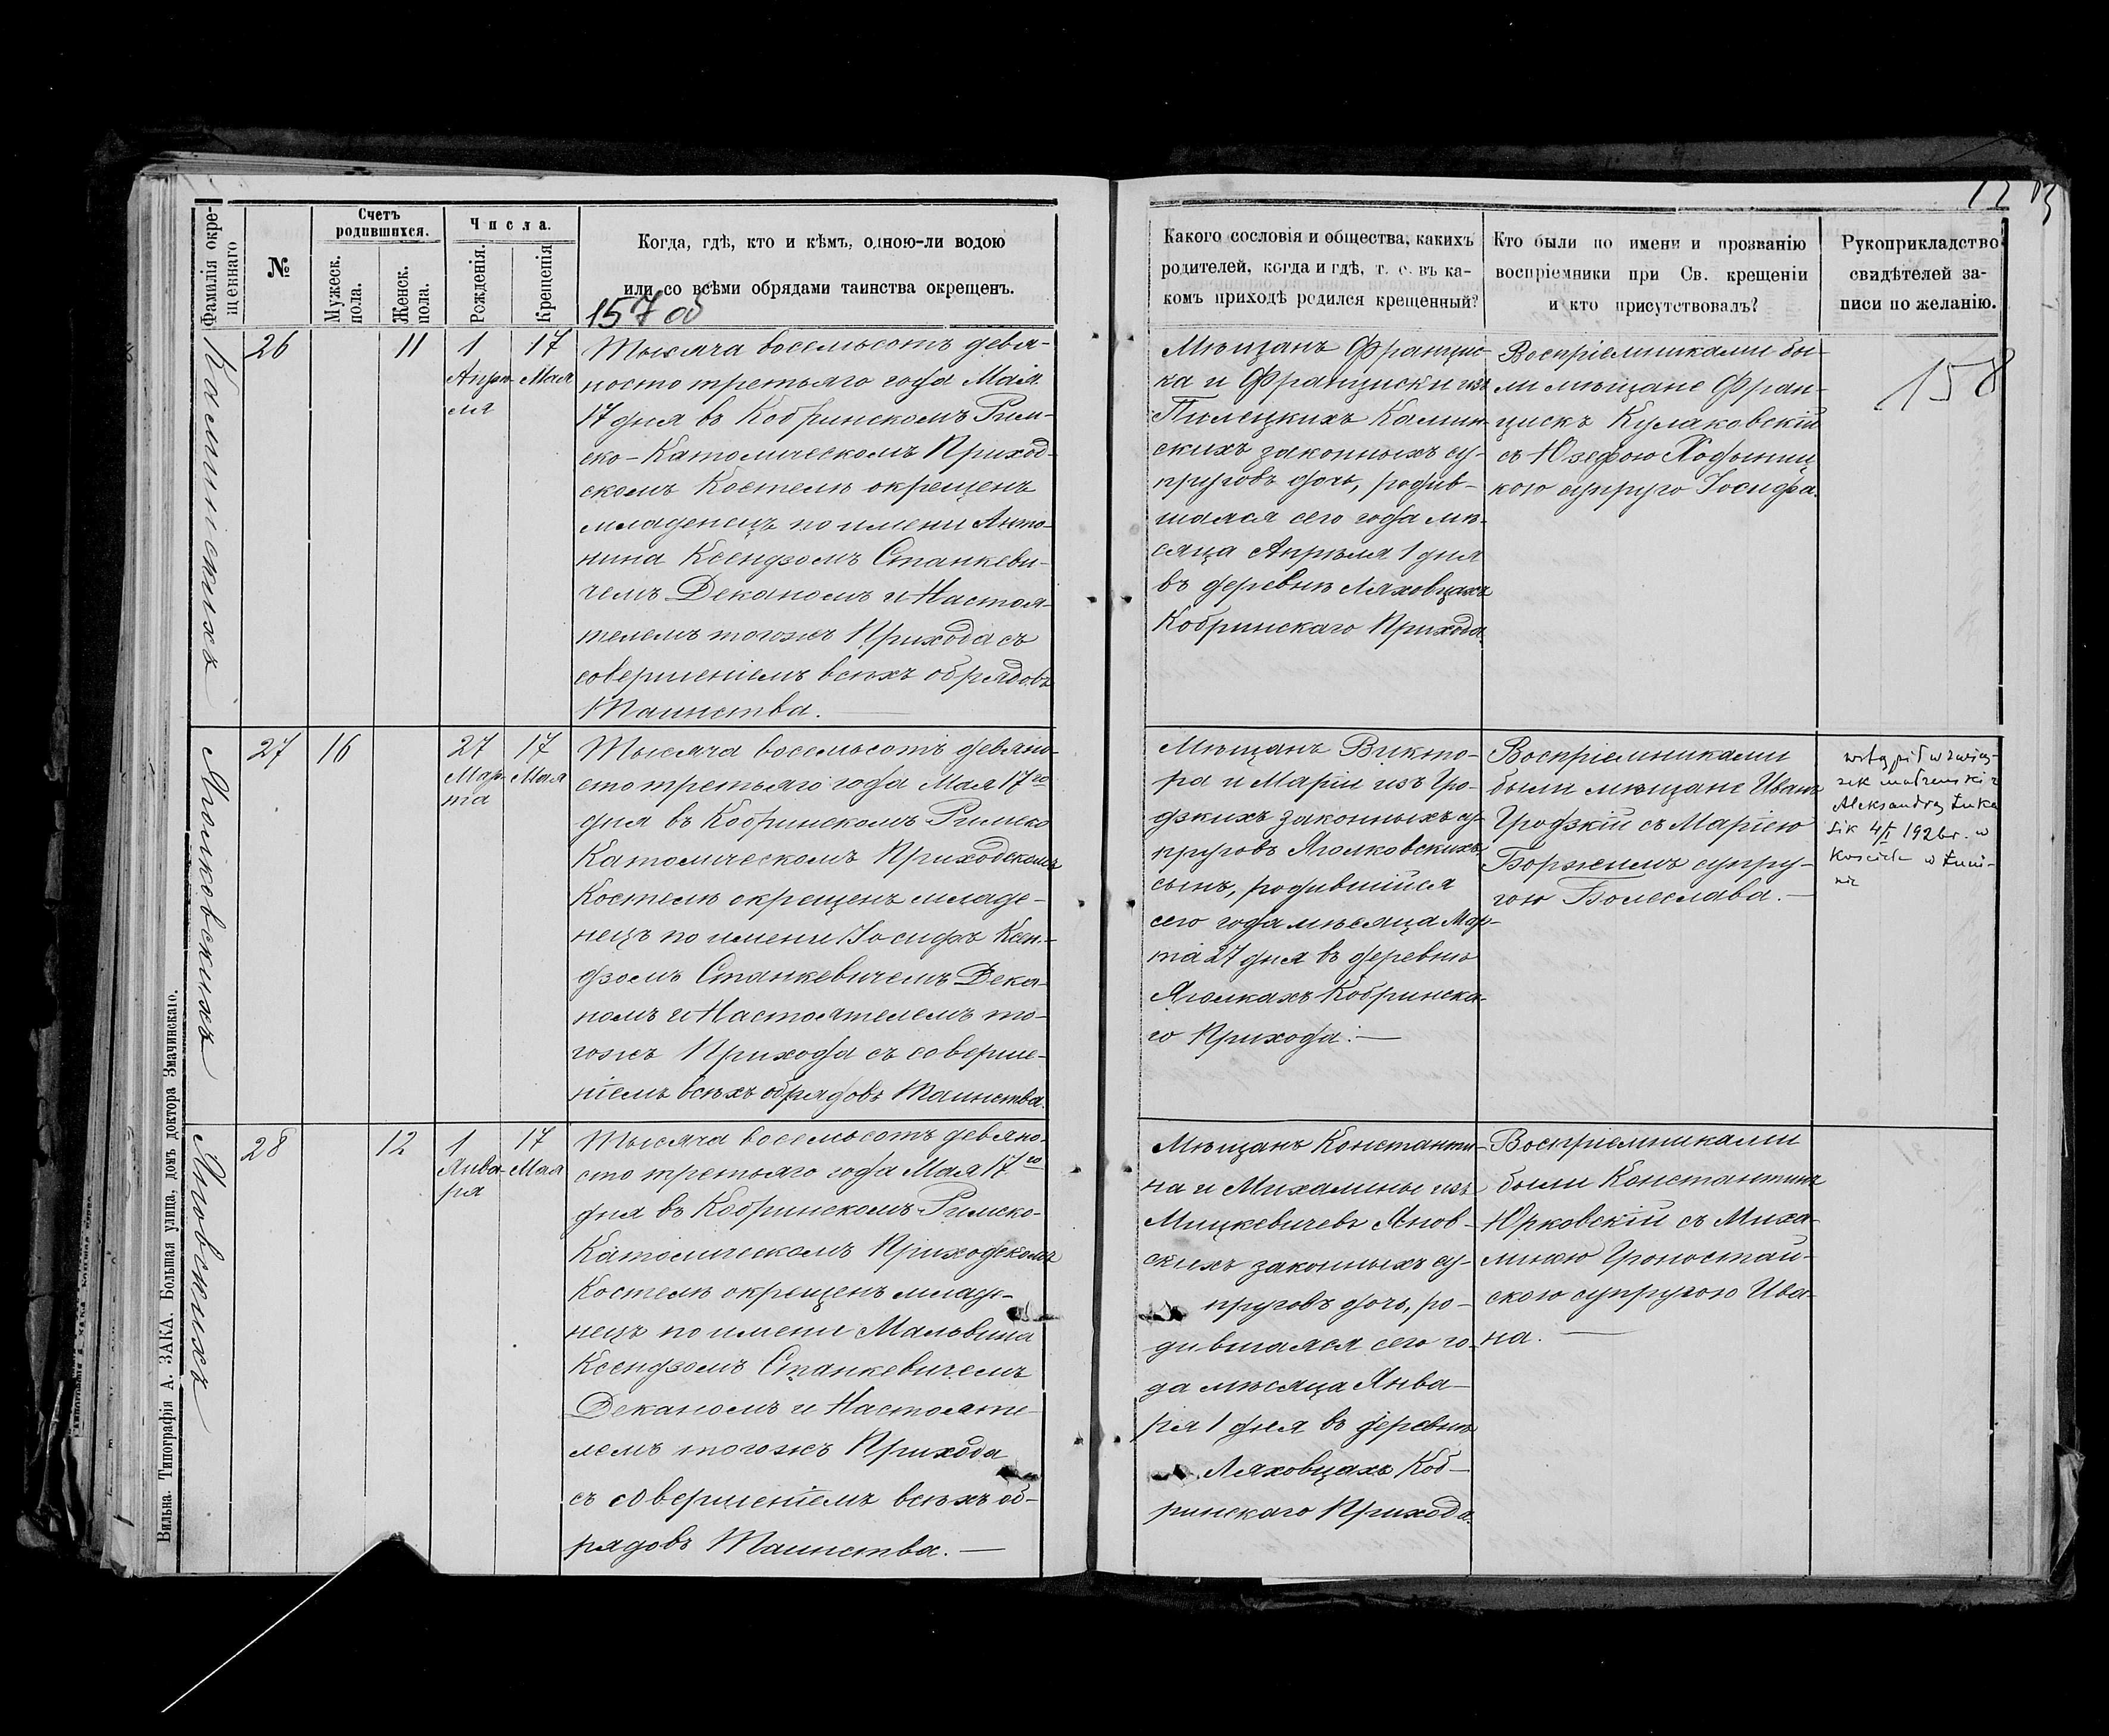 Фамилія окре-
щеннаго
№
Счетъ
родившихся.
Мужеск.
пола.
Женск.
пола.
Числа.
Рожденія.
Крещенія
Когда, гдѣ, кто и кѣмъ, одною-ли водою
или со всѣми обрядами таинства окрещенъ.
157 об
Каминскихъ
26
11
1
Апрѣ-
ля
17
Мая
Тысяча восемьсотъ девя-
носто третьяго года Мая
17 дня въ Кобринскомъ Рим-
ско-Католическомъ Приход-
скомъ Костелѣ окрещенъ
младенецъ по имени Анто-
нина Ксендзомъ Станкеви-
чемъ Деканомъ и Настоя-
телемъ тогожъ Прихода съ
совершеніемъ всѣхъ обрядовъ
Таинства.
Яголковскихъ
27
16
27
Мар-
та
17
Мая
Тысяча восемьсотъ девяно-
сто третьяго года Мая 17го
дня въ Кобринскомъ Римско
Католическомъ Приходскомъ
Костелѣ окрещенъ младе-
нецъ по имени Іосифъ Ксен-
дзомъ Станкевичемъ Дека-
номъ и Настоятелемъ то-
гожъ Прихода съ соверше-
ніемъ всѣхъ обрядовъ Таинства.
Яновскихъ
28
12
1
Янва-
ря
17
Мая
Тысяча восемьсотъ девяно-
сто третьяго года Мая 17го
дня въ Кобринскомъ Римско-
Католическомъ Приходскомъ
Костелѣ окрещенъ младе-
нецъ по имени Мальвина
Ксендзомъ Станкевичемъ
Деканомъ и Настояте-
лемъ тогожъ Прихода
съ совершеніемъ всѣхъ об-
рядовъ Таинства.
Вильна. Типографія А. ЗАКА. Большая улица, домъ доктора Змачинскаго.
Какого сословія и общества, какихъ
родителей, когда и гдѣ, т. е. въ ка-
комъ приходѣ родился крещенный?
Кто были по имени и прозванію
воспріемники при Св. крещеніи
и кто присутствовалъ?
Рукоприкладство
свидѣтелей за-
писи по желанію.
Мѣщанъ Францис-
ка и Франциски изъ
Пилецкихъ Камин-
скихъ законныхъ су-
пруговъ дочь, родив-
шаяся сего года мѣ-
сяца Апрѣля 1 дня
въ деревнѣ Ляховцахъ
Кобринскаго Прихода.
Воспріемниками бы-
ли мѣщане Фран-
цискъ Кулаковскій
съ Юзефою
кою супруго Іосифа.
158
Мѣщанъ Викто-
ра и Маріи изъ Гро-
дзкихъ законныхъ су-
пруговъ Яголковскихъ
сынъ, родившійся
сего года мѣсяца Мар-
та 27 дня въ деревнѣ
Яголкахъ Кобринска-
го Прихода.
Воспріемниками
были мѣщане Иванъ
Гродзкій съ Маріею
Боржимъ супру-
гою Болеслава.
wstąpił w zwią-
zek małżeński z
Aleksandrą Łuka
sik 4/I 1926 r. w
kościele w Łuni-
nie
Мѣщанъ Константи-
на и Михалины изъ
Мицкевичевъ Янов-
скихъ законныхъ су-
пруговъ дочь, ро-
дившаяся сего го-
да мѣсяца Янва-
ря 1 дня въ деревнѣ
Ляховцахъ Коб-
ринскаго Прихода.
Воспріемниками
были Константинъ
Юрковскій съ Миха-
линою Гроностай-
скою супругою Ива-
на.